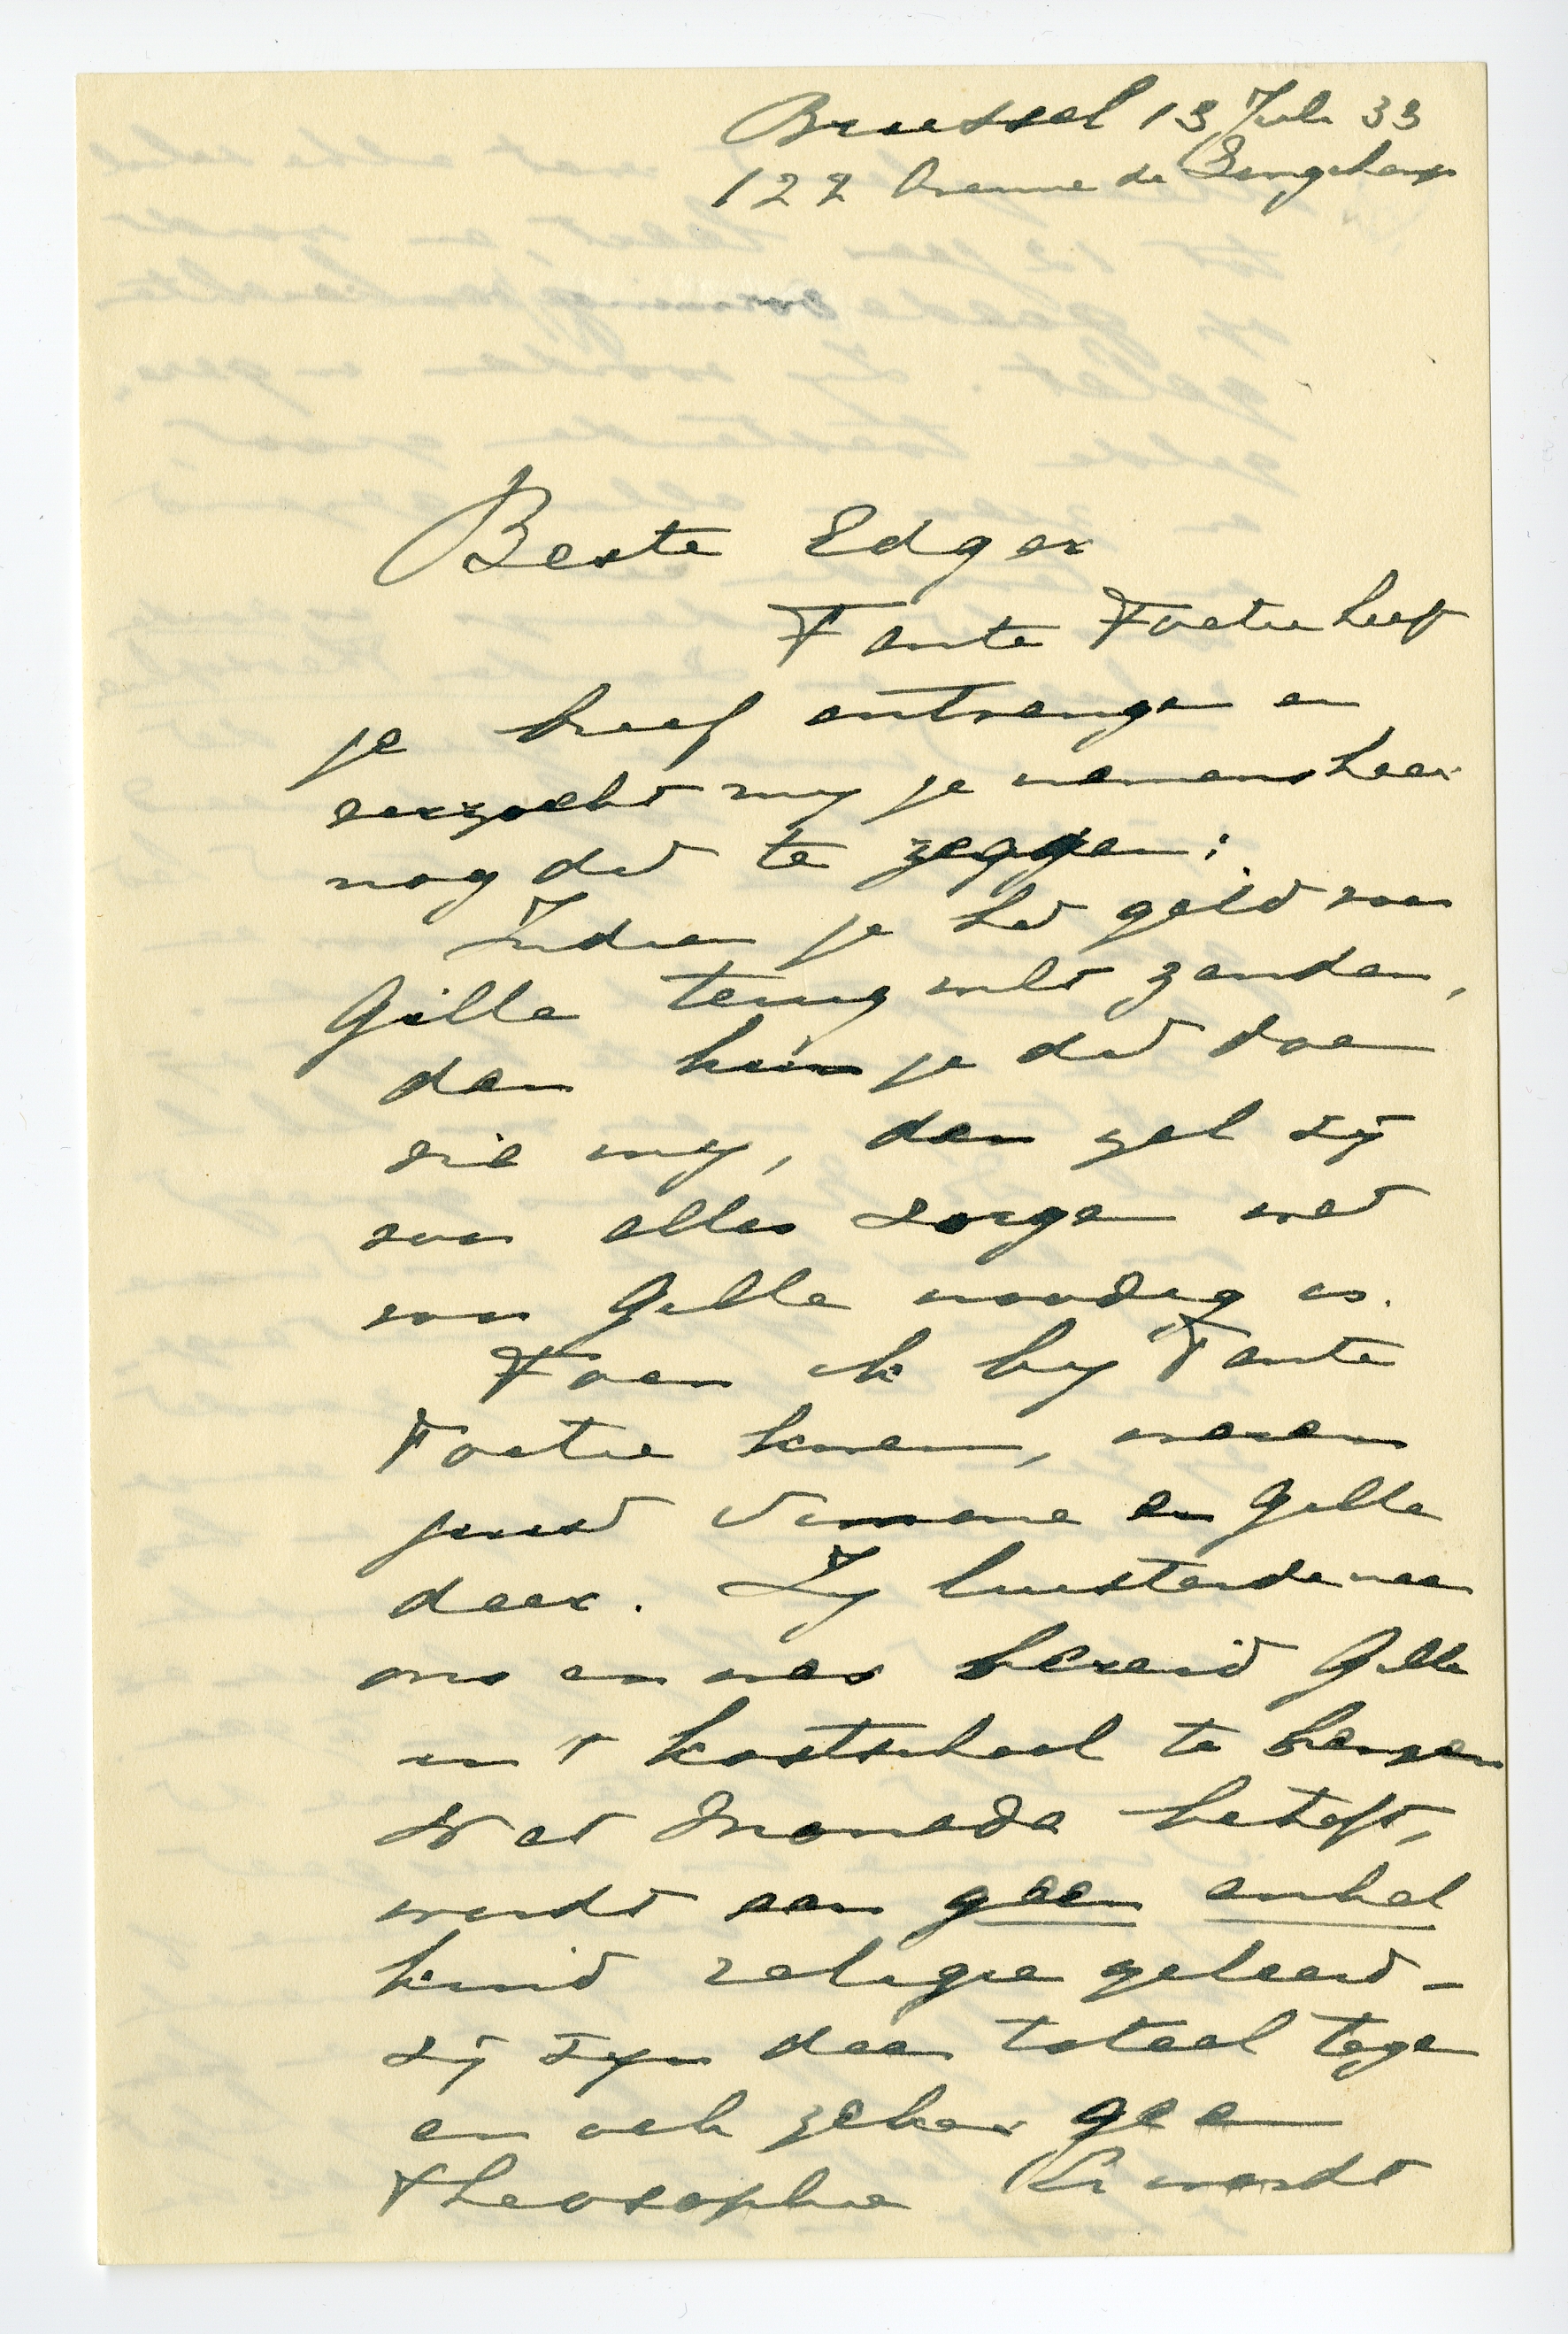 Brussel 13 Juli 33
122 Avenue de Longchamps
Beste Edgar
Tante Toetie heeft
je brief ontvangen en
verzocht mij je namens haar
nog dit te zeggen:
Indien je het geld van
Gille terug wilt zenden,
dan kùn je dit doen
viâ mij, dan zal zij
voor alles zorgen wat
voor Gille noodig is.
Toen ik bij Tante
Toetie kwam, waren
juist Simone en Gille
daar. Zij luisterde naar
ons en was bereid Gille
in 't kostschool te brengen
Wat Monada betreft,
wordt aan geen enkel
kind religie geleerd -
zij zijn daar totaal tegen
en ook zeker geen
Theosophie Er wordt